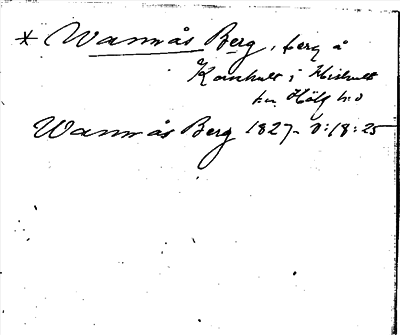 * Wannås Berg, berg å
Kornhult i Hishult
sn Höks hd
Wannås Berg 1827 - D:18:25